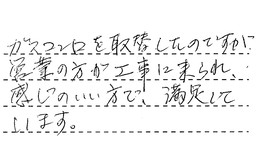 ガスコンロを取替したのですが
営業の方が工事に来られ、
感じのいい方で、満足して
います。